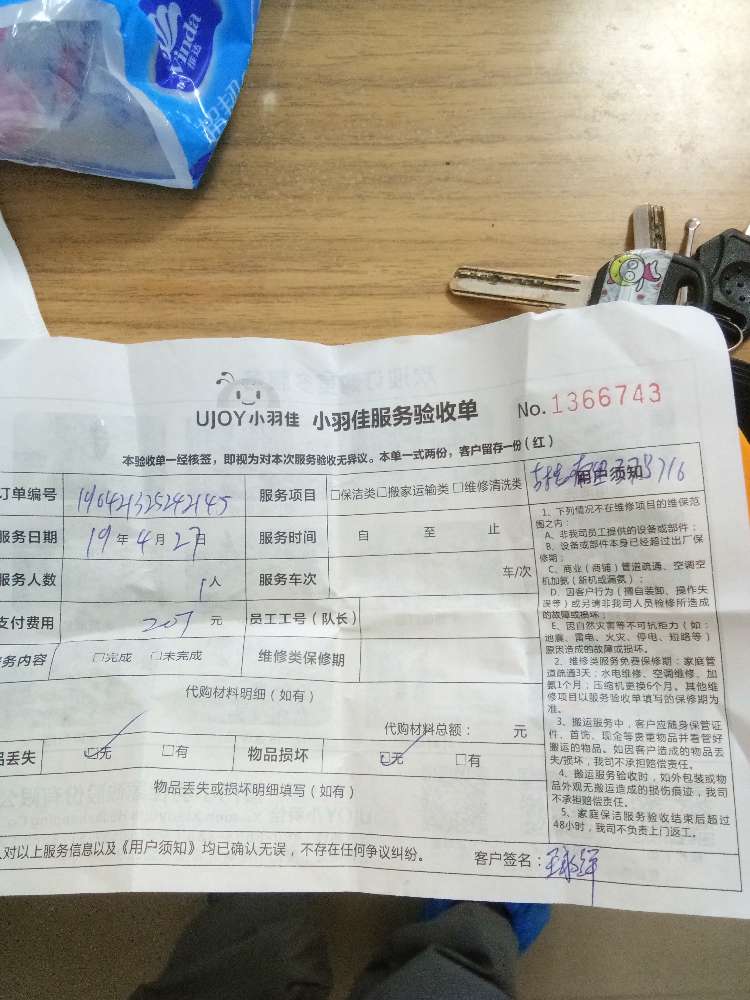 Vinda
维达
超韧
UJOY小羽佳 小羽佳服务验收单 No.1366743
本验收单一经核签，即视为对本次服务验收无异议。本单一式两份，客户留存一份（红）
订单编号 190421325242145 服务项目 □保洁类□搬家运输类□维修清洗类
服务日期 19年4月27日 服务时间 自 至 止
服务人数 1人 服务车次 车/次
支付费用 207元 员工工号（队长）
务内容 □完成 □未完成 维修类保修期
代购材料明细（如有）
代购材料总额： 元
品丢失 □无 □有 物品损坏 □无 □有
物品丢失或损坏明细填写（如有）
人对以上服务信息以及《用户须知》均已确认无误，不存在任何争议纠纷。 客户签名：
用户须知
1、下列情况不在维修项目的维保范
围之内：
A、非我司员工提供的设备或部件；
B、设备或部件本身已经超过出厂保
修期；
C、商业（商铺）管道疏通、空调空
机加氨（新机或漏氨）；
D、因客户行为（擅自装卸、操作失
误等）或另请非我司人员检修所造成
的故障或损坏；
E、因自然灾害等不可抗拒力（如：
地震、雷电、火灾、停电、短路等）
原因造成的故障或损坏。
2、维修类服务免费保修期：家庭管
道疏通3天；水电维修、空调维修、加
氨1个月；压缩机更换6个月。其他维
修项目以服务验收单填写的保修期为
准。
3、搬运服务中，客户应随身保管证
件、首饰、现金等贵重物品并看管好
搬运的物品。如因客户造成的物品丢
失/损坏，我司不承担赔偿责任。
4、搬运服务验收时，如外包装或物
品外观无搬运造成的损伤痕迹，我司
不承担赔偿责任。
5、家庭保洁服务验收结束后超过
48小时，我司不负责上门返工。